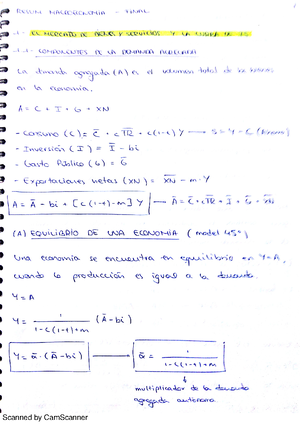 RESUM MACROECONOMIA - FINAL
1.- EL MERCADO DE BIENES Y SERVICIOS Y LA CURVA DE IS
1.1- COMPONENTES DE LA DEMANDA AGREGADA
La demanda agregada (A) es el volumen total de
en la economía.
A = C + I + G + XN
- Consumo (C) = C̄ + cTR̄ + c(1-t) Y → S = Y - C (Ahorro)
- Inversión (I) = Ī - bi
- Gasto Público (G) = Ḡ
- Exportaciones netas (XN) = X̄N̄ - m·Y
A = Ā - bi + [c(1-t) - m] Y → Ā = C̄ + cTR̄ + Ī + Ḡ + X̄N̄
(A) EQUILIBRIO DE UNA ECONOMÍA (model 45°)
Una economía se encuentra en equilibrio en Y=A,
cuando la producción es igual a la demanda.
Y = A
Y = 1 / (1-c(1-t)+m) (Ā - bi)
Y = ᾱ · (Ā - bi) → ᾱ = 1 / (1-c(1-t)+m)
multiplicador de la demanda
agregada autónoma.
Scanned by CamScanner